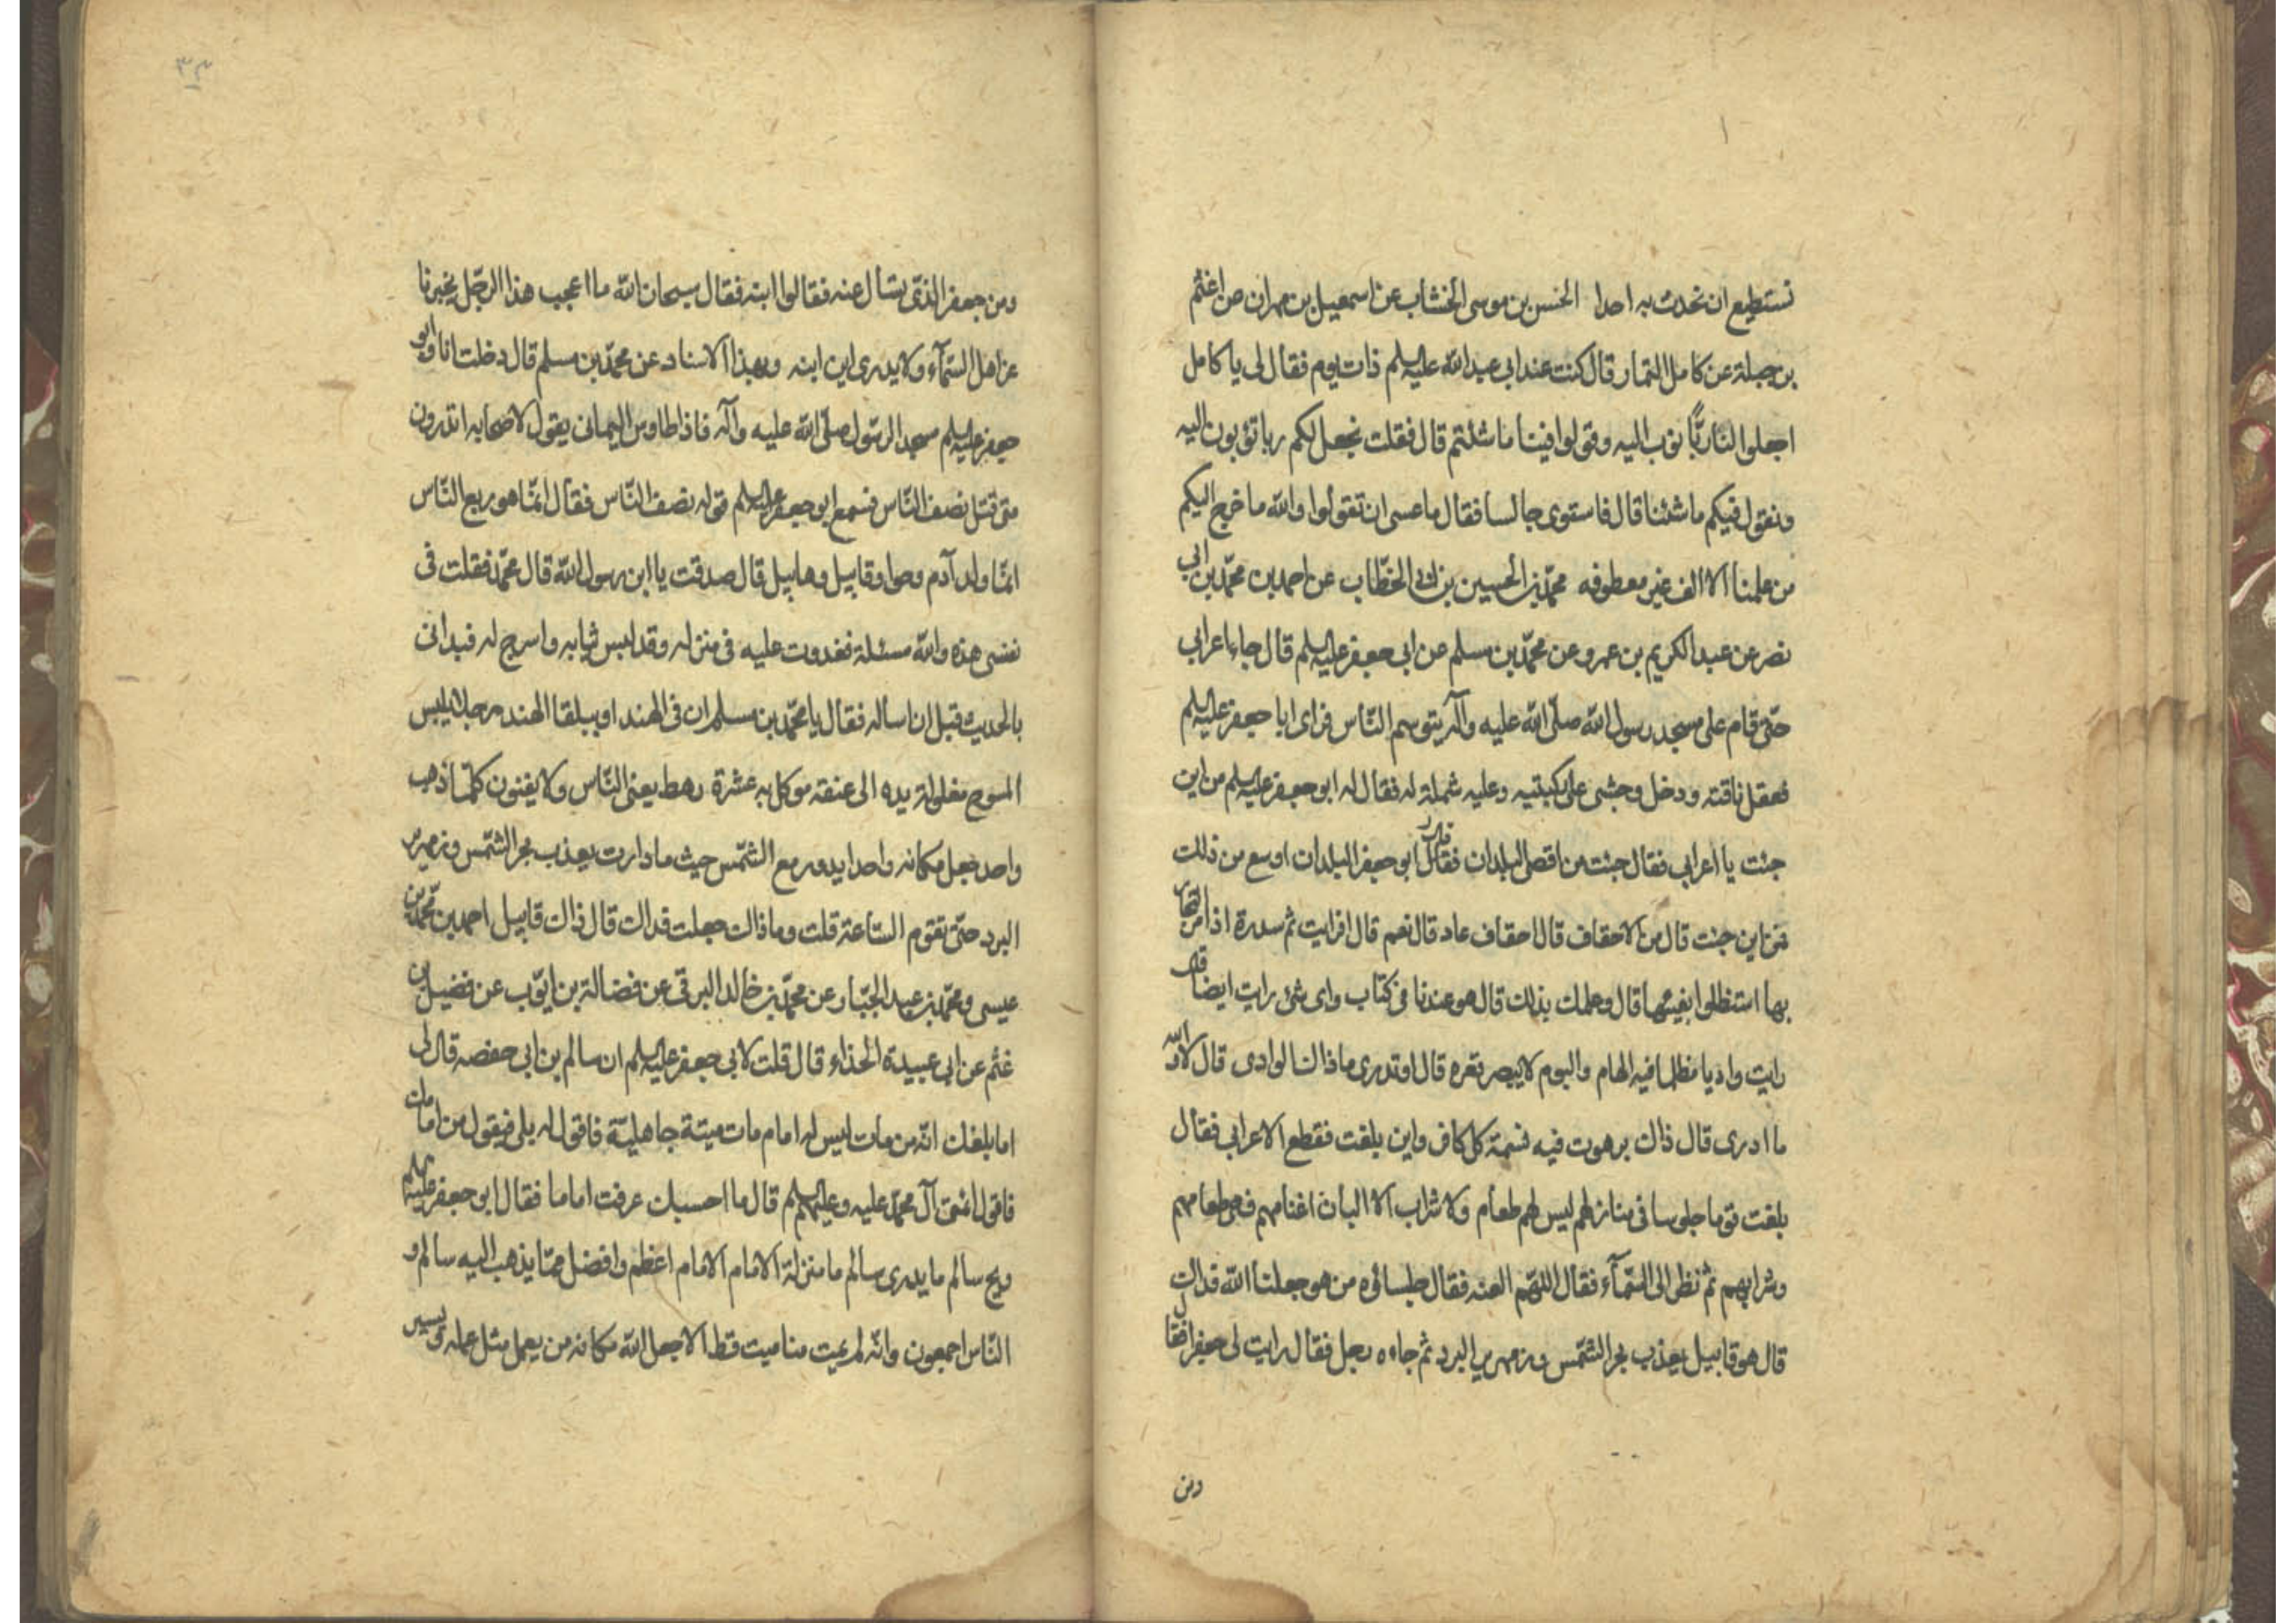 نستطيع ان نحدث به احدا الحسن بن موسى الخشاب عن اسمعيل بن مهران عن اعثم
بن جبلة عن كامل التمار قال كنت عند ابى عبد الله عليه السلم ذات يوم فقال لى يا كامل
اجعلوا لنا ربّا نؤب اليه وقولوا فينا ما شئتم قال فقلت نجعل لكم ربا تؤبون اليه
ونقول فيكم ما شئنا قال فاستوى جالسا فقال ما عسى ان تقولوا والله ما خرج اليكم
من علمنا الا الف غير معطوفه محمّد بن الحسين بن ابى الخطّاب عن احمد بن محمّد بن ابى
نصر عن عبد الكريم بن عمرو عن محمّد بن مسلم عن ابى جعفر عليه السلم قال جاء اعرابى
حتّى قام على مسجد رسول الله صلّى الله عليه وآله يتوسم النّاس فراى ابا جعفر عليه السلم
فعقل ناقته ودخل وجثى على ركبتيه وعليه شملة له فقال له ابو جعفر عليه السلم من اين
جئت يا اعرابى فقال جئت من اقصى البلدان فقال ابو جعفر البلدان اوسع من ذلك
فمن اين جئت قال من الاحقاف قال احقاف عاد قال نعم قال افرايت ثم سدرة اذا مرّ التجار
بها استظلوا بفيئها قال وعلمك بذلك قال هو عندنا فى كتاب واى شئ رايت ايضا قال
رايت واديا مظلما فيه الهام والبوم لا يبصر قعره قال اوتدرى ما ذاك الوادى قال لا والله
ما ادرى قال ذاك برهوت فيه نسمة كل كافر واين بلغت فقطع الاعرابى فقال
بلغت قوما جلوسا فى منازلهم ليس لهم طعام ولا شراب الا البان اغنامهم فهى طعامهم
وشرابهم ثم نظر الى السّمآء فقال اللهّم العنه فقال جلساؤه من هو جعلنا الله فداك
قال هو قابيل يعذب بحر الشّمس وزمهرير البرد ثم جاءه رجل فقال رايت لى جعفرا فقال
ومن
٣٣
ومن جعفر الذى يسأل عنه فقالوا ابنه فقال سبحان الله ما اعجب هذا الرجّل يخبرنا
عن اهل السّمآء ولا يدرى اين ابنه وبهذا الاسناد عن محمّد بن مسلم قال دخلت انا وابو
جعفر عليه السلم مسجد الرسّول صلّى الله عليه وآله فاذا طاوس اليمانى يقول لاصحابه اتدرون
متى قتل نصف النّاس فسمع ابو جعفر عليه السلم قوله نصف النّاس فقال انمّا هو ربع النّاس
انمّا ولد آدم وحوا وقابيل وهابيل قال صدقت يا ابن رسول الله قال محمّد فقلت فى
نفسى هذه والله مسئلة فغدوت عليه فى منزله وقد لبس ثيابه واسرج له فبدانى
بالحديث قبل ان اساله فقال يا محمّد بن مسلم ان فى الهند او ببلقا الهند رجلا يلبس
المسوح مغلولة يده الى عنقه موكل به عشرة رهط يعنى النّاس ولا يفنون كلمّا ذهب
واحد جعل مكانه واحدا يدور مع الشّمس حيث ما دارت يعذب بحر الشّمس وزمهرير
البرد حتّى تقوم السّاعة قلت وما ذاك جعلت فداك قال ذاك قابيل احمد بن محمّد بن
عيسى ومحمّد بن عبد الجبّار عن محمّد بن خالد البرقى عن فضالة بن ايوّب عن فضيل بن
غثم عن ابى عبيدة الحذاء قال قلت لابى جعفر عليه السلم ان سالم بن ابى حفصه قال لى
اما بلغك انّه من مات ليس له امام مات ميتة جاهليّة فاقول له بلى فيقول من امامك
فاقول ائمتى آل محمّد عليه وعليهم السلم قال ما احسبك عرفت اماما فقال ابو جعفر عليه السلم
ويح سالم ما يدرى سالم ما منزلة الامام الامام اعظم وافضل ممّا يذهب اليه سالم و
النّاس اجمعون وانّه لم يمت منا ميت قط الا جعل الله مكانه من يعمل مثل عمله ويسير